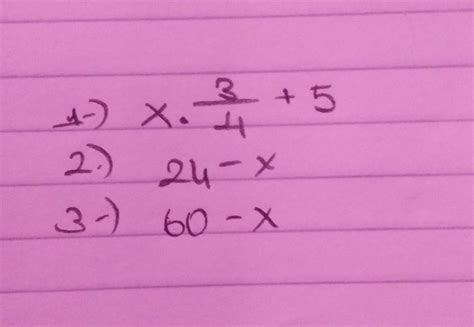 1-) x · 3/4 + 5
2-) 24 - x
3-) 60 - x